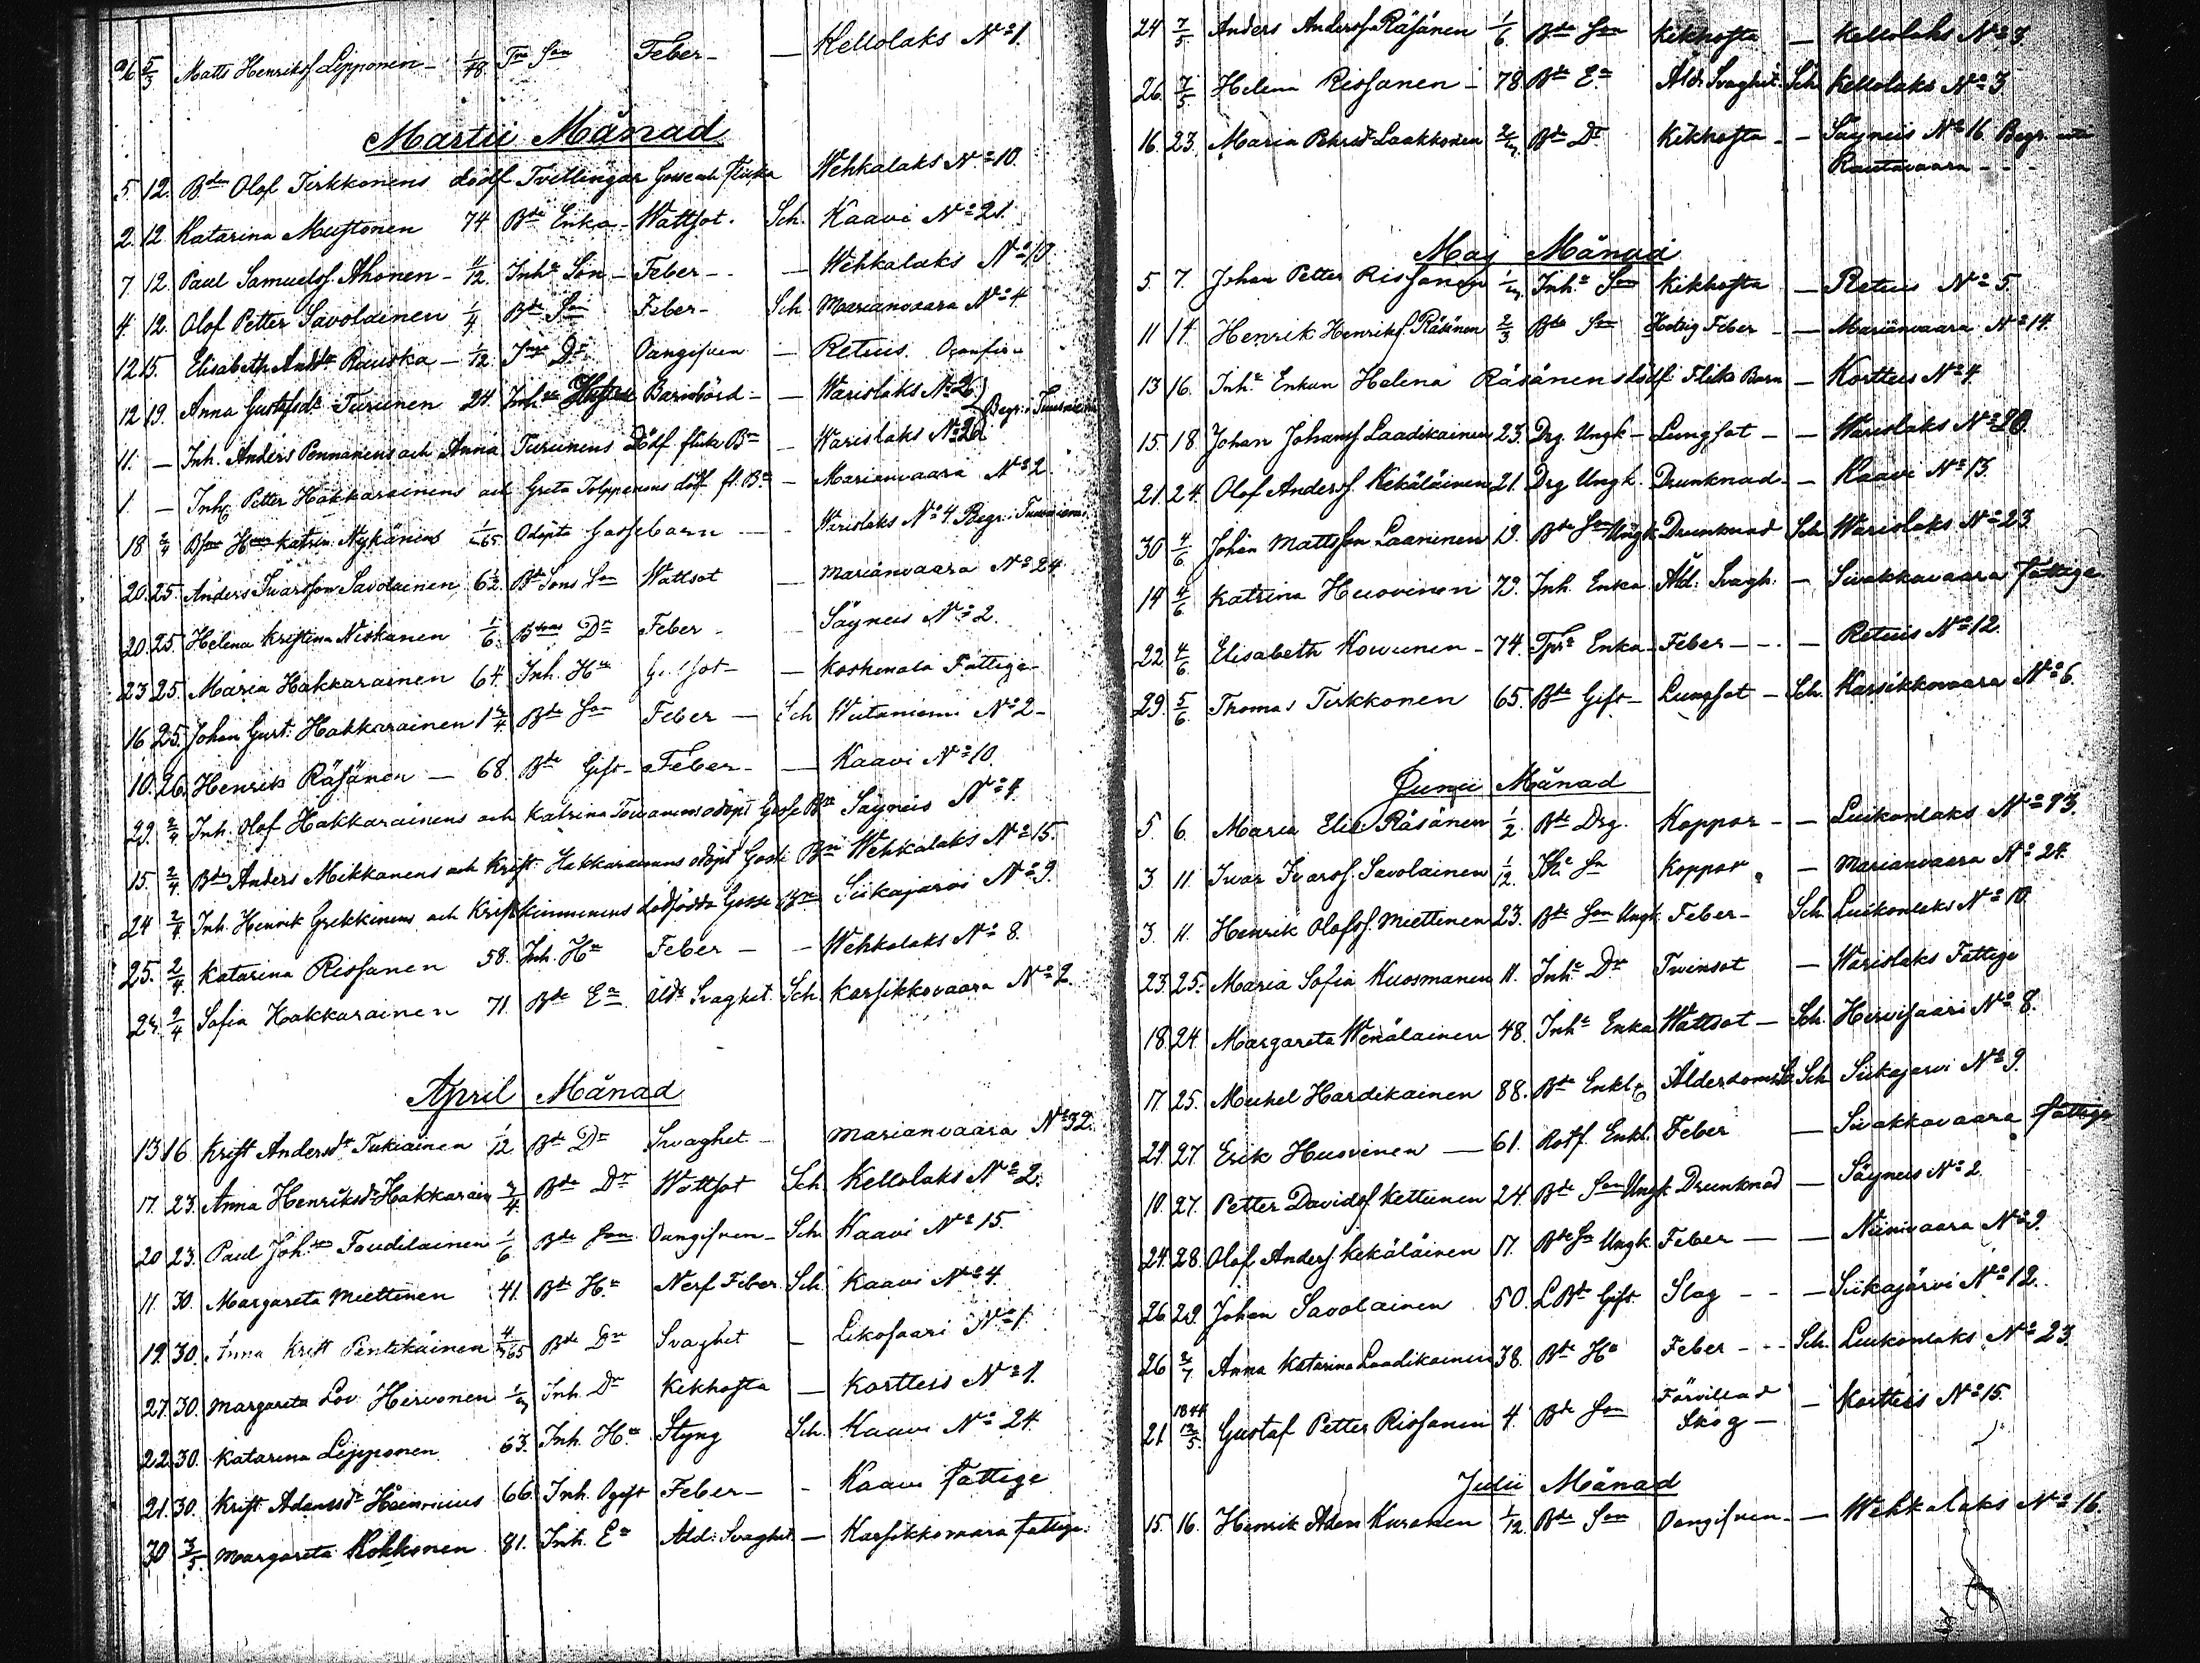 26 5/3 Matts Henrikss Lipponen - 1/48 Tru Son Feber - — Kellolaks N:o 1.
Martii Månad
5. 12. Bde Olof Tirkkonens dödf Tvillingar Gosse och flicka Wehkalaks N:o 10.
2. 12 Katarina Mustonen 74 Bde Enka - Wattsot. Sch. Kaavi N:o 21.
7. 12. Paul Samuelss. Ahonen - 4/12. Inhs Son - Feber - - — Wehkalaks N:o 10
4. 12. Olof Petter Savolainen 1/4 Bde Son Feber - Sch Marianvaara N:o 4
12 15. Elisabeth Andsdr Rauska - 1/12 Dr Oangifven — Retuis
12 19. Anna Gustafsdr Turunen 24. Inhs Hustru Barnbörd - - Warislaks N:o 2
11. — Inh. Anders Pennanens och Anna Turunens Dödf flicka Bn - Warislaks N:o 2 Begr. i Tuusniemi
1. — Inhs Petter Hakkarainens och Greta Tolppanens döf fl. Bn - Marianvaara N:o 2.
18 2/4 Katrin Nykänens 1/365 Odöpta Gossebarn — - Warislaks N:o 4. Begr. i Tuusniemi
20. 25. Anders Ivarsson Savolainen 6 1/2 Bde Sons Son Wattsot — Marianvaara N:o 24
20. 25. Helena Kristina Niskanen 1/6 Dr Feber - Säyneis N:o 2.
23 25. Maria Hakkarainen 64. Inh. Hu — Koskenala Fattige -
16 25. Johan Gust. Hakkarainen 1 3/4 Bde Son Feber — Sch Wiitaniemi N:o 2 -
10. 26. Henrik Räsänen — 68. Bde Gift - Feber - — Kaavi N:o 10.
29. 2/4 Inh. Olof Hakkarainens och Katrina Toivanens odöpt Gosse Bn Säyneis N:o 4.
15. 2/4. Bde Anders Mikkanens och Krist: Hakkarainens odöpt Gosse Bn Wehkalaks N:o 15.
24 2/4 Inh. Henrik Grekkinens och Krist Kinnunens dödfödda Gosse Bn Siikajarvi N:o 9.
25. 2/4 Katarina Rissanen 58. Inh. Ha Feber — - Wehkalaks N:o 8.
2 2/4 Sofia Hakkarainen 71. Bde Ea Åld: Svaghet Sch Karsikkovaara N:o 2.
April Månad
13 16 Krist Andersdr Tukiainen 1/12 Bde Dr Svaghet - Marianvaara N:o 32.
17. 23. Anna Henriksdr Hakkarain 3/4. Bde Dr Wattsot Sch Kellolaks N:o 2.
20 23. Paul Joh:son Foudilainen 1/6 Bde Son Oangifven - Sch. Kaavi N:o 15.
11. 30. Margareta Miettinen 41. Bde Ha Nerf Feber Sch. Kaavi N:o 4.
19. 30. Anna Krist Pentikäinen 4/365 Bde Dr Svaghet - Likosaari N:o 1.
27. 30. Margareta Lov Hirvonen Inh. Dr Kikhosta — Kortteis N:o 1.
22. 30. Katarina Lipponen 63. Inh. Ha Styng Sch. Kaavi N:o 24.
21. 30. Krist Adamsdr Heinonius 66. Inh. Ogift Feber - - Kaavi Fattige
30 3/5. Margareta Kokkonen 81. Inh. Ea Åld: Svaghet — Karsikkovaara fattige.
24 7/5 Anders Anderss Räsänen 1/6. Bde Son Kikhosta — Kellolaks N:o 3.
26. 7/5 Helena Rissanen - 78. Bde Ea Åld: Svaghet Sch Kellolaks N:o 3
16. 23. Maria Laakkonen Bde Dr Kikhosta - - Säyneis N:o 16 Begr.
Rautavaara - - -
Maj Månad
5 7. Johan Petter Rissanen Inhs Son Kikhosta — Retuis N:o 5.
11 14. Henrik Henrikss. Räsänen 2/3 Bde Son Hetsig Feber - — Marianvaara N:o 14.
13 16. Inhs Enkan Helena Räsänens dödf. Flick Barn — Kortteis N:o 4.
15 18. Johan Johanss Laadikainen 23. Drg. Ungk - Lungsot - — Warislaks N:o 20.
21. 24. Olof Anderss. Kekäläinen 21. Drg Ungk. Drunknad - — Kaavi N:o 13.
30 4/6 Johan Mattsson Laaninen 19. Bde Son Ungk Drunknad Sch Warislaks N:o 23.
14 4/6 Katrina Huovinen 72. Inh. Enka Åld: Svagh. — Sivakkavaara Fattige
22 4/6 Elisabeth Kovunen - 74. Enka - Feber - - - — Retuis N:o 12.
29. 5/6 Thomas Tirkkonen 65. Bde Gift - Lungsot - Sch. Karsikkovaara N:o 6.
Junii Månad
5. 6. Maria Elis Räsänen 1/2. Bde Drg. Koppor - — Luikonlaks N:o 23.
3. 11. Ivar Ivarss. Savolainen 1/12. Sn Koppor — Marianvaara N:o 24.
3. 11. Henrik Olofss. Miettinen 23. Bde Son Ungk. Feber - Sch Luikonlaks N:o 10
23. 25. Maria Sofia Kuosmanen 11. Inhs Dr Tvinsot — Warislaks Fattige
18. 24. Margareta Wenäläinen 48. Inhs Enka Wattsot — Sch. Hirvisaari N:o 8.
17. 25. Michel Hardikainen 88. Bde Enkl. Ålderdoms Sch Siikajarvi N:o 9.
21. 27 Erik Huovinen — 61. Rotf. Enkl. Feber — Sivakkavaara Fattige
10. 27. Petter Davidss Kettunen 24. Bde Son Ungk Drunknad — Säyneis N:o 2.
24. 28. Olof Anderss. Kekäläinen 17. Bde Sn Ungk. Feber — — Niinivaara N:o 9.
26 29. Johan Savolainen 50. LBde Gift Slag - - — Siikajärvi N:o 12.
26 2/7 Anna Katarina Laadikainen 38. Bde Ha Feber - - - Sch. Luikonlaks N:o 23.
21. 1844 12/5. Gustaf Petter Rissanen 4. Bde Son Förvillad — Kortteis N:o 15.
Skog —
Julii Månad
15. 16. Henrik Adam Kuranen 1/12. Bde Son Oangifven - — Wehkalaks N:o 16.